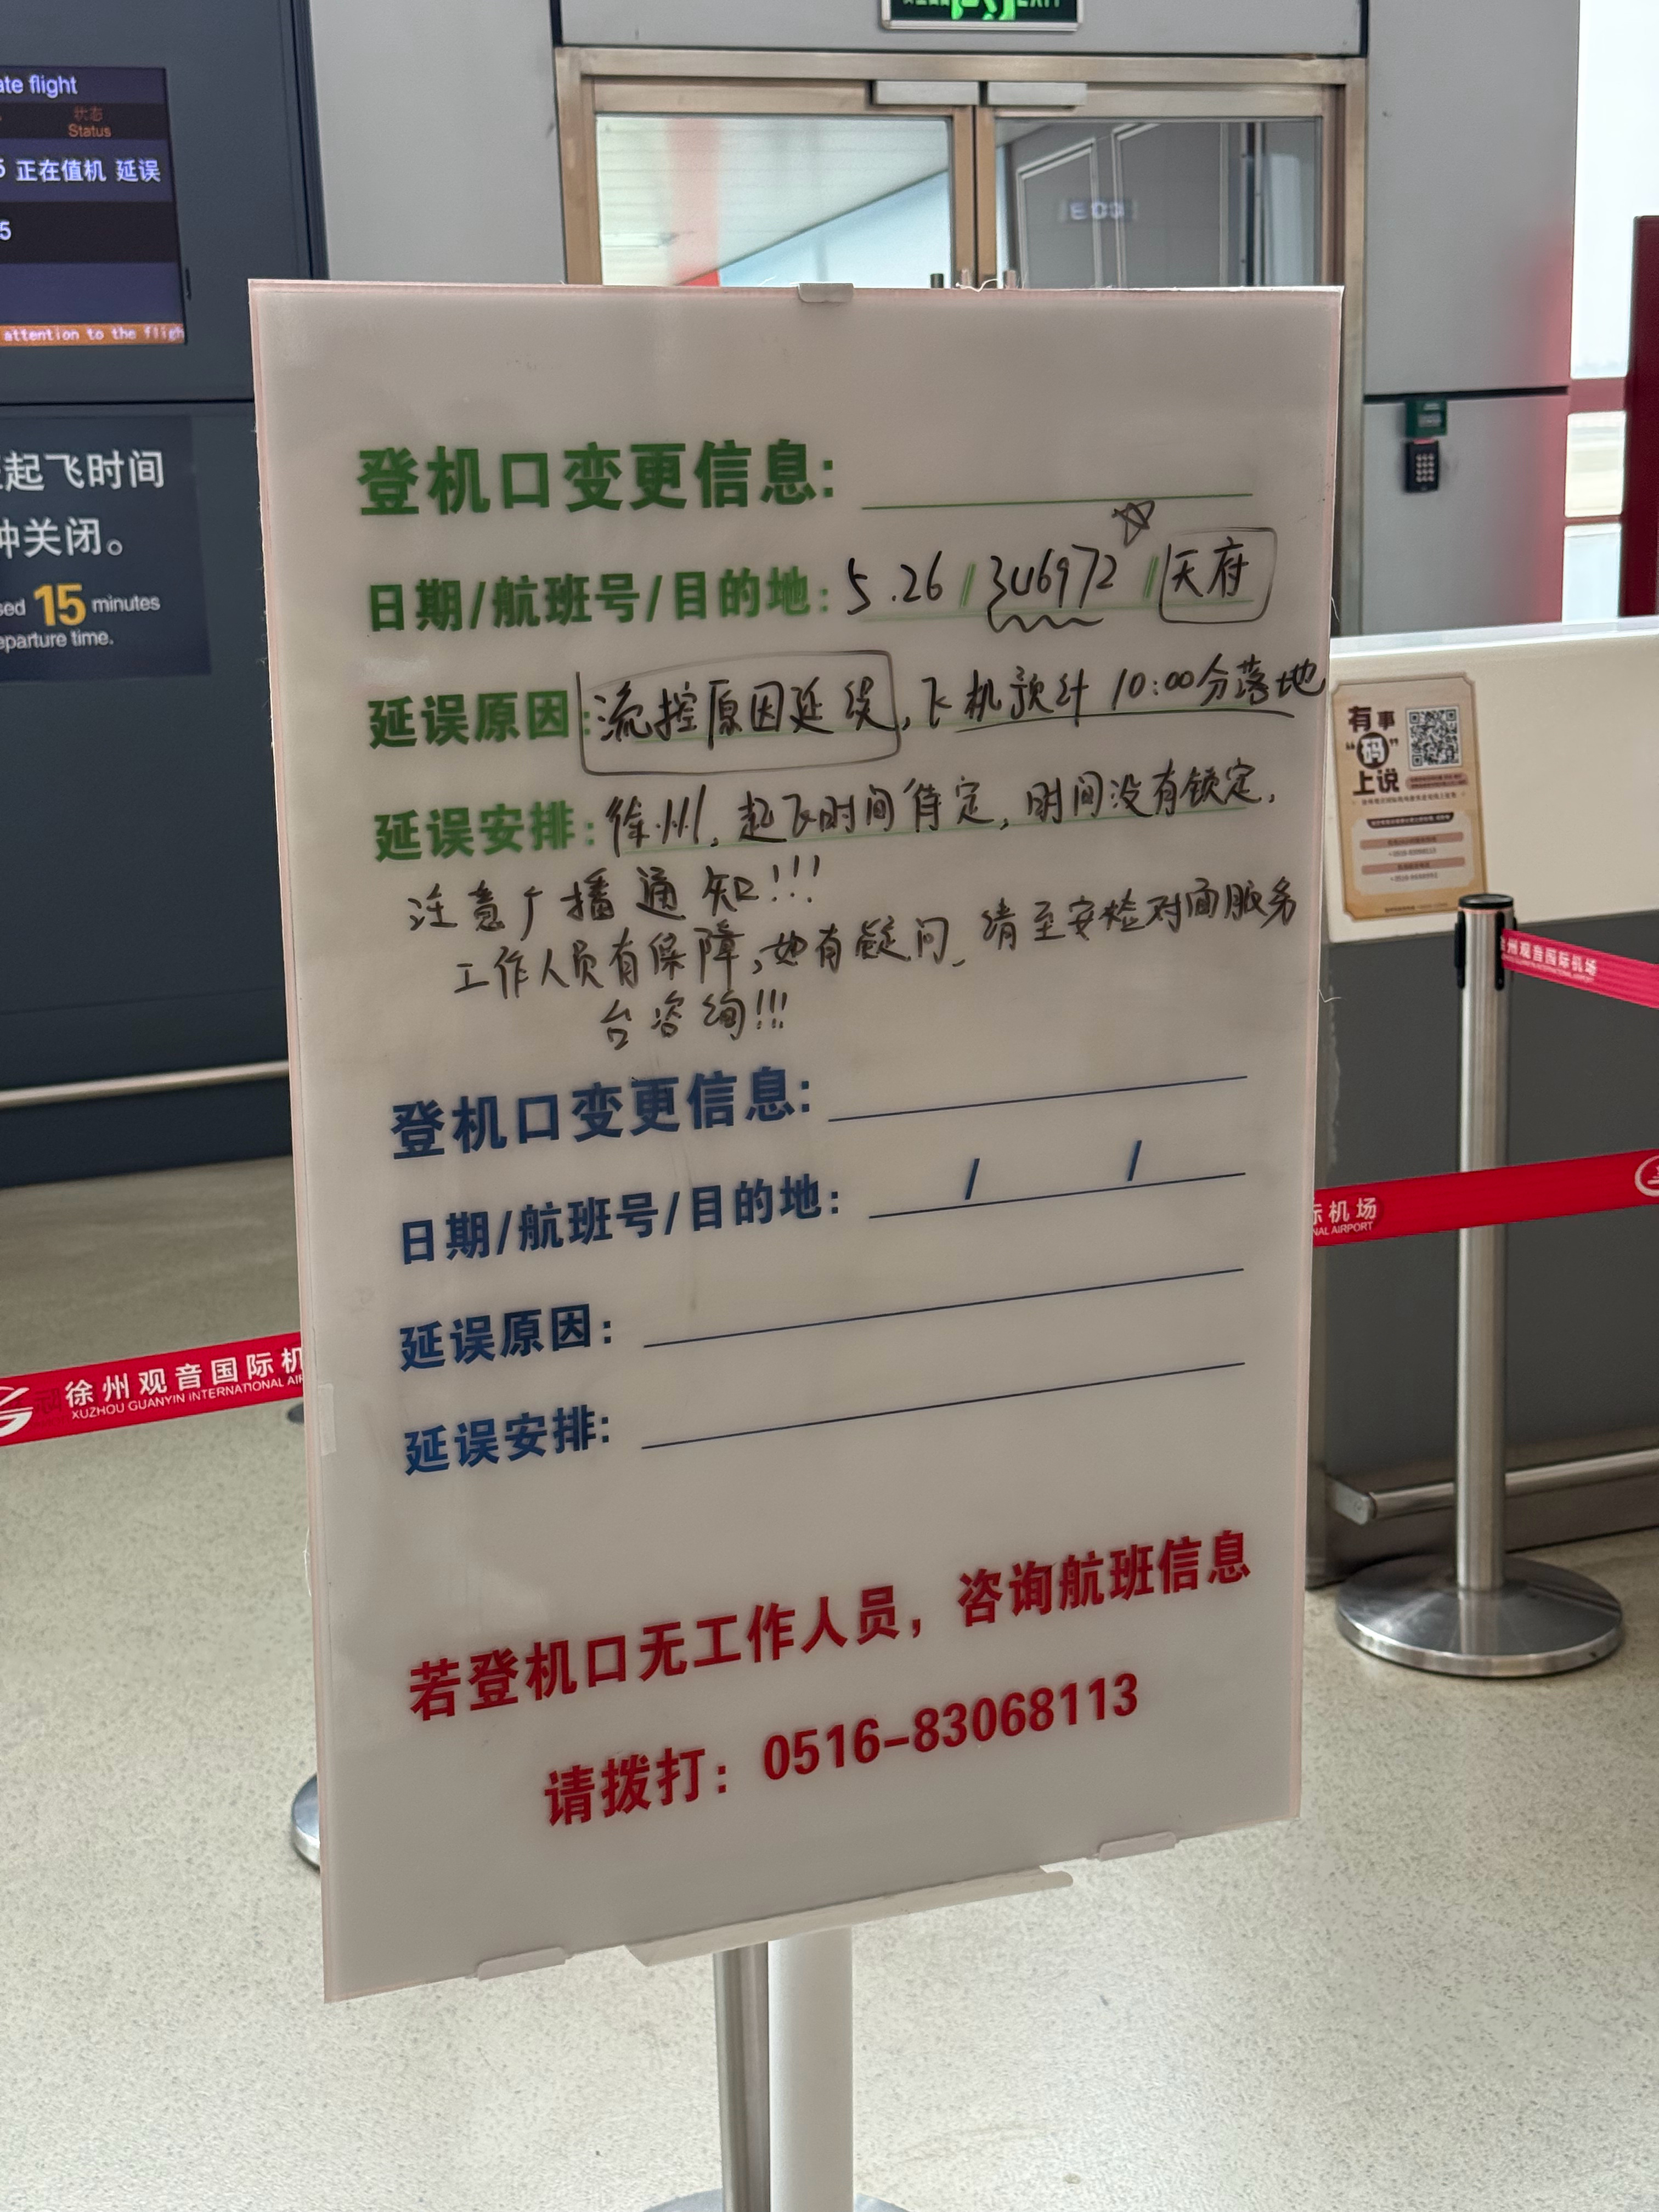 ate flight
状态
Status
5 正在值机 延误
5
attention to the fligh
起飞时间
钟关闭。
sed 15 minutes
eparture time.
登机口变更信息:
日期/航班号/目的地: 5.26 / 3U6972 / 天府
延误原因: 流控原因延误, 飞机预计 10:00分落地
延误安排: 徐州, 起飞时间待定, 时间没有锁定,
注意广播通知!!!
工作人员有保障,如有疑问, 请至安检对面服务
台咨询!!!
登机口变更信息:
日期/航班号/目的地: / /
延误原因:
延误安排:
若登机口无工作人员，咨询航班信息
请拨打: 0516-83068113
有事
“码”
上说
州观音国际机场
际机场
NAL AIRPORT
徐州观音国际机
XUZHOU GUANYIN INTERNATIONAL AIR